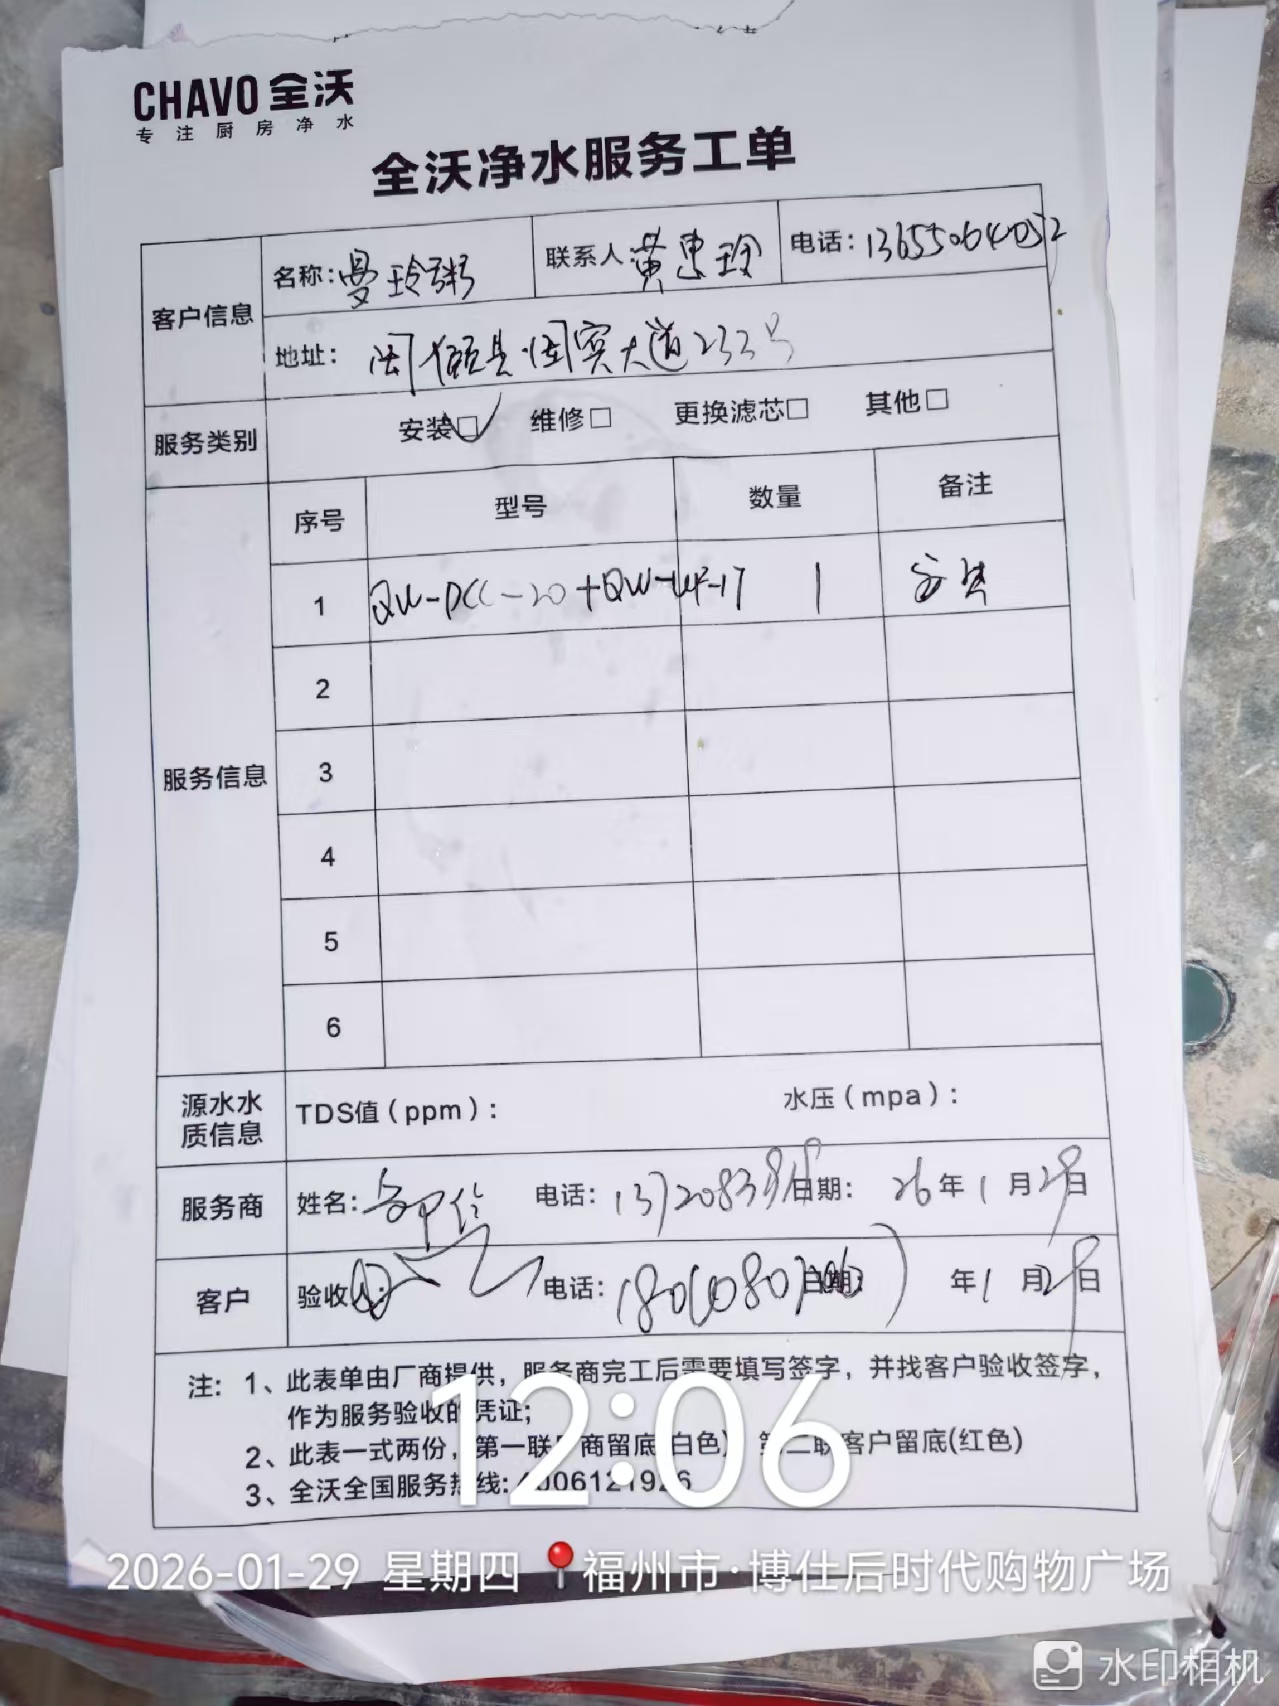 CHAVO 全沃
专注厨房净水
全沃净水服务工单
客户信息 名称:曼玲粥 联系人:黄惠玲 电话:13655064052
地址: 闽侯县国宾大道233号
服务类别 安装☑ 维修□ 更换滤芯□ 其他□
服务信息 序号 型号 数量 备注
1 QW-DCC-20+QW-UF-17 1
2
3
4
5
6
源水水质信息 TDS值(ppm): 水压(mpa):
服务商 姓名: 电话: 日期: 26年1月29日
客户 验收人: 电话: 日期: 年1月29日
注: 1、此表单由厂商提供,服务商完工后需要填写签字,并找客户验收签字,
作为服务验收的凭证;
2、此表一式两份,第一联厂商留底(白色) 第二联客户留底(红色)
3、全沃全国服务热线:4006121926
12:06
2026-01-29 星期四 福州市·博仕后时代购物广场
水印相机